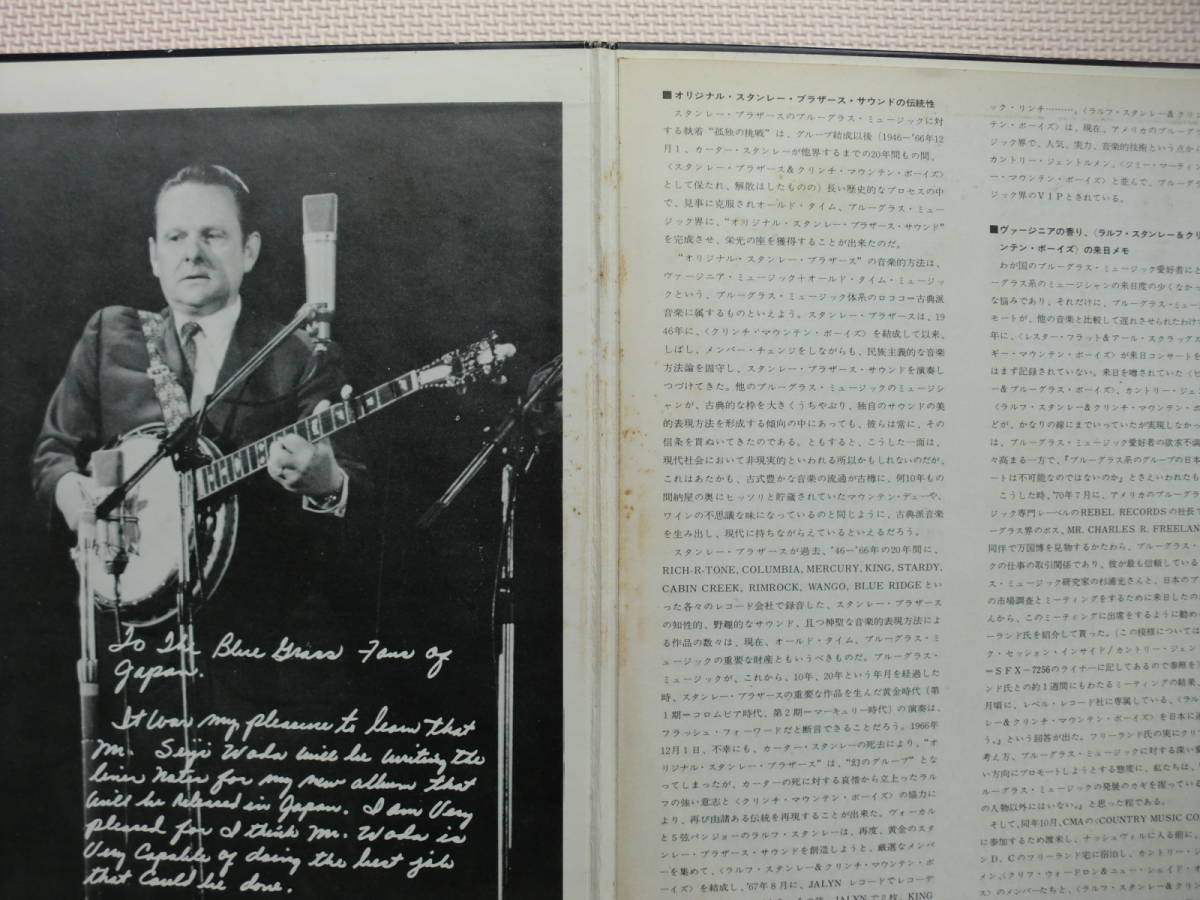 To The Blue Grass Fans of
Japan.
It was my pleasure to learn that
Mr. Seiji Wada will be writing the
liner notes for my new album that
will be released in Japan. I am Very
pleased for I think Mr. Wada is
Very Capable of doing the best job
that could be done.
■オリジナル・スタンレー・ブラザース・サウンドの伝統性
スタンレー・ブラザースのブルーグラス・ミュージックに対
する執着“孤独の挑戦”は、グループ結成以後(1946―'66年12
月1、カーター・スタンレーが他界するまでの20年間もの間、
〈スタンレー・ブラザース&クリンチ・マウンテン・ボーイズ〉
として保たれ、解散はしたものの)長い歴史的なプロセスの中
で、見事に克服されオールド・タイム、ブルーグラス・ミュー
ジック界に、“オリジナル・スタンレー・ブラザース・サウンド”
を完成させ、栄光の座を獲得することが出来たのだ。
“オリジナル・スタンレー・ブラザース”の音楽的方法は、
ヴァージニア・ミュージック+オールド・タイム・ミュージッ
クという、ブルーグラス・ミュージック体系のロココー古典派
音楽に属するものといえよう。スタンレー・ブラザースは、19
46年に、〈クリンチ・マウンテン・ボーイズ〉を結成して以来、
しばし、メンバー・チェンジをしながらも、民族主義的な音楽
方法論を固守し、スタンレー・ブラザース・サウンドを演奏し
つづけてきた。他のブルーグラス・ミュージックのミュージシ
ャンが、古典的な枠を大きくうちやぶり、独自のサウンドの美
的表現方法を形成する傾向の中にあっても、彼らは常に、その
信条を貫ぬいてきたのである。ともすると、こうした一面は、
現代社会において非現実的といわれる所以かもしれないのだが、
これはあたかも、古式豊かな音楽の流通が古樽に、何10年もの
間納屋の奥にヒッソリと貯蔵されていたマウンテン・デューや、
ワインの不思議な味になっているのと同じように、古典派音楽
を生み出し、現代に持ちながらえているといえるだろう。
スタンレー・ブラザースが過去、'46―'66年の20年間に、
RICH-R-TONE, COLUMBIA, MERCURY, KING, STARDY,
CABIN CREEK, RIMROCK, WANGO, BLUE RIDGEとい
った各々のレコード会社で録音した、スタンレー・ブラザース
の知性的、野趣的なサウンド、且つ神聖な音楽的表現方法によ
る作品の数々は、現在、オールド・タイム、ブルーグラス・ミ
ュージックの重要な財産ともいうべきものだ。ブルーグラス・
ミュージックが、これから、10年、20年という年月を経過した
時、スタンレー・ブラザースの重要な作品を生んだ黄金時代(第
1期=コロムビア時代、第2期=マーキュリー時代)の演奏は、
フラッシュ・フォーワードだと断言できることだろう。1966年
12月1日、不幸にも、カーター・スタンレーの死去により、“オ
リジナル・スタンレー・ブラザース”は、“幻のグループ”とな
ってしまったが、カーターの死に対する哀惜から立上ったラル
フの強い意志と〈クリンチ・マウンテン・ボーイズ〉の協力に
より、再び由諸ある伝統を再現することが出来た。ヴォーカル
と5弦バンジョーのラルフ・スタンレーは、再度、黄金のスタ
ンレー・ブラザース・サウンドを創造しようと、厳選なメンバ
ーを集めて、〈ラルフ・スタンレー&クリンチ・マウンテン・ボ
ーイズ〉を結成し、'67年8月に、JALYN レコードでレコーデ
JALYNで2枚、KING
ック・リンチ………。〈ラルフ・スタンレー&クリン
テン・ボーイズ〉は、現在、アメリカのブルーグ
ジック界で、人気、実力、音楽的技術という点から
カントリー・ジェントルメン、〈ジミー・マーティン
ー・マウンテン・ボーイズ〉と並んで、ブルーグ
ジック界のVIPとされている。
■ヴァージニアの香り、〈ラルフ・スタンレー&クリ
ンテン・ボーイズ〉の来日メモ
わが国のブルーグラス・ミュージック愛好者にと
グラス系のミュージシャンの来日度の少くなかっ
な悩みであり、それだけに、ブルーグラス・ミュー
モートが、他の音楽と比較して遅れさせられたわけ
年に、〈レスター・フラット&アール・スクラッグス
ギー・マウンテン・ボーイズ〉が来日コンサートを
はまず記録されていない。来日を噂されていた〈ビ
ー&ブルーグラス・ボーイズ〉、カントリー・ジェン
〈ラルフ・スタンレー&クリンチ・マウンテン・ボ
どが、かなりの線にまでいっていたが実現しなかっ
は、ブルーグラス・ミュージック愛好者の欲求不満
々高まる一方で、『ブルーグラス系のグループの日本
ートは不可能なのではないのか』とさえいわれたも
こうした時、'70年7月に、アメリカのブルーグラ
ジック専門レーベルのREBEL RECORDSの社長で
ーグラス界のボス、MR. CHARLES R. FREELAN
同伴で万国博を見物するかたわら、ブルーグラス・
クの仕事の取引関係であり、彼が最も信頼している
ス・ミュージック研究家の杉浦光さんと、日本のブ
の市場調査とミーティングをするために来日したの
んから、このミーティングに出席をするように勧め
ーランド氏を紹介して貰った。(この模様については
ク・セッション・インサイド/カントリー・ジェン
=SFX-7256のライナーに記してあるので参照を
ンド氏との約1週間にもわたるミーティングの結果、
月頃に、レベル・レコード社に専属している、〈ラル
レー&クリンチ・マウンテン・ボーイズ〉を日本に
う。』という回答が出た。フリーランド氏の実にクリ
考え方、ブルーグラス・ミュージックに対する深い愛
い方向にプロモートしようとする態度に、私たちは、
ルーグラス・ミュージックの発展のカギを握ってい
の人物以外にはいない。』と思った程である。
そして、同年10月、CMAの<COUNTRY MUSIC CO
に参加するため渡米し、ナッシュヴィルに入る前に、
ンD.Cのフリーランド宅に宿泊し、カントリー・ジ
メン、〈クリフ・ウォードロン&ニュー・シェイド・
ス〉のメンバーたちと、〈ラルフ・スタンレー&クリン